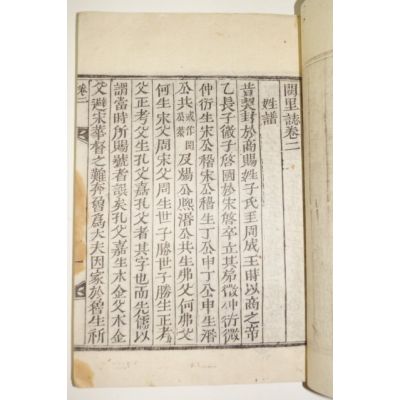 闕里誌卷二
姓譜
昔契封於商賜姓子氏至周成王時以商之帝
乙長子微子啓國於宋啓卒立其弟微仲衍微
仲衍生宋公稽宋公稽生丁公申丁公申生湣
公共或作閔公及煬公熙湣公共生弗父何弗父
何生宋父周宋父周生世子勝世子勝生正考
父正考父生孔父嘉孔父者其字也而先儒以
謂當時所賜號者誤矣孔父嘉生木金父木金
父避宋華督之難奔魯爲大夫因家於魯生祈
卷二